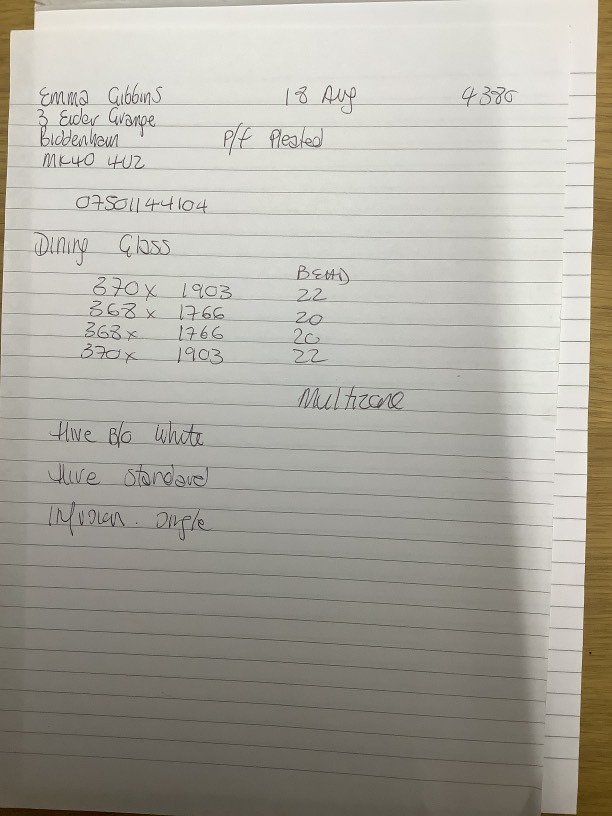 Emma Gibbins 18 Aug 4380
3 Eider Grange
Biddenham P/f Pleated
MK40 4UZ
07501144104
Dining Glass
BEAD
370 x 1903 22
368 x 1766 20
368 x 1766 20
370 x 1903 22
Multizone
Hive B/o White
Hive Standard
Infusion. Single